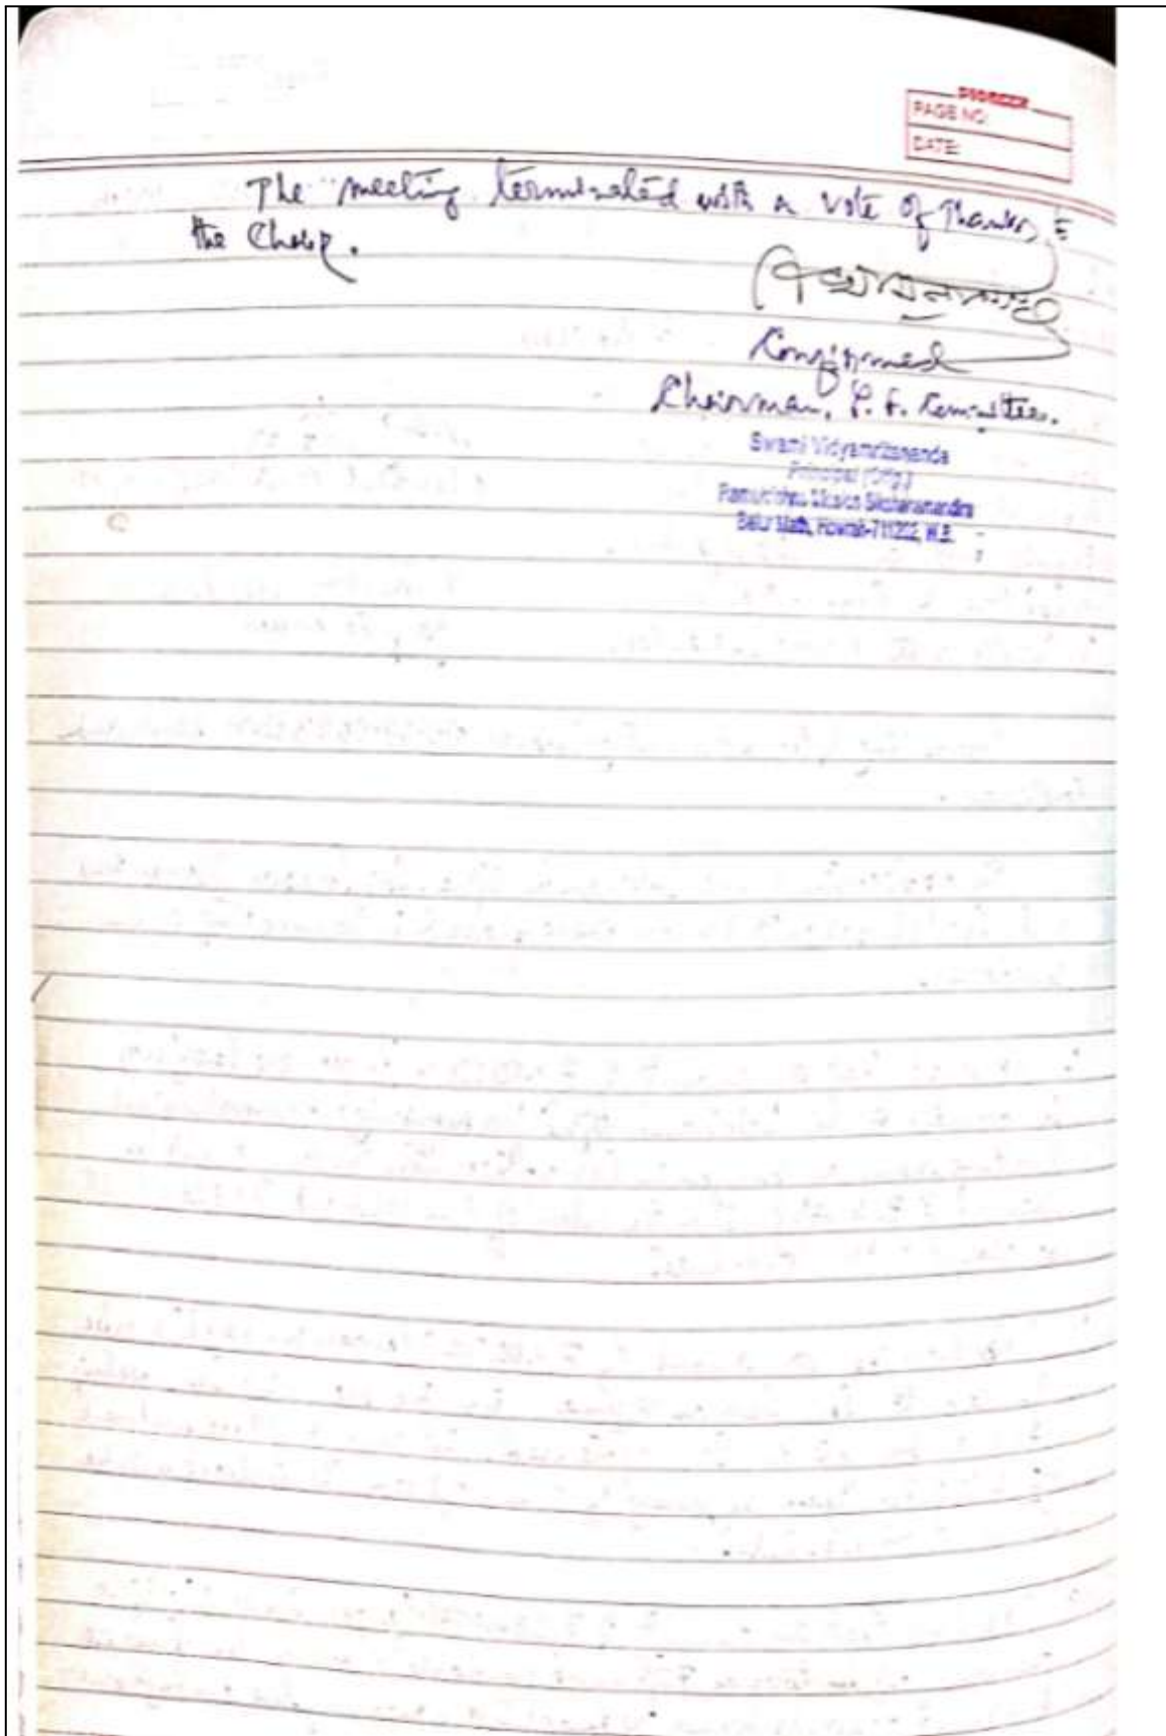 PAGE NO:
DATE:
The meeting terminated with a vote of Thanks to
the Chair.
Confirmed
Chairman, P. F. Committee.
Swami Vidyamritananda
Principal (Offg.)
Ramakrishna Mission Sikshanamandira
Belur Math, Howrah-711202, W.B.